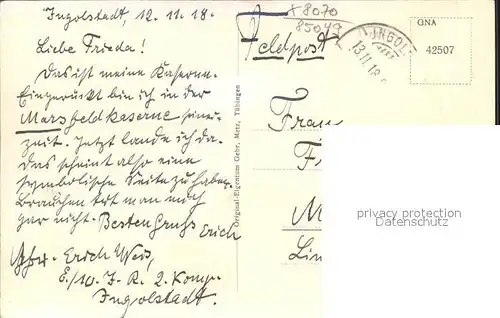 Ingolstadt, 12.11.18.
Liebe Frieda!
Das ist meine Kaserne.
Eingerückt bin ich in der
Marsfeldkaserne seiner-
zeit. Jetzt lande ich da.
Das scheint also eine
symbolische Seite zu haben.
Brauchen tut man mich
gar nicht. Besten Gruss Erich
Erich Weis,
E./10. I. R. 2. Komp.
Ingolstadt.
Original-Eigentum Gebr. Metz, Tübingen
8070
85049
Feldpost
INGOL
13.11.18
GNA
42507
Frau
F
M
Lin
privacy protection
Datenschutz